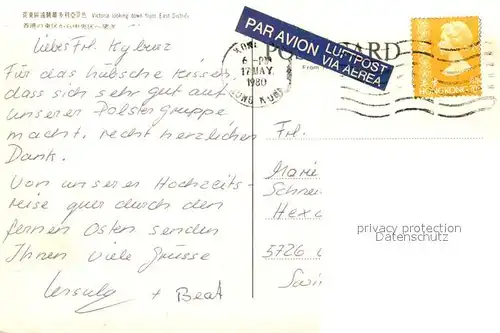 Victoria looking down from East District
Liebes Frl. Kyburz
Für das hübsche Kissen,
dass sich sehr gut auf
unserer Polstergruppe
macht, recht herzlichen
Dank.
Von unserer Hochzeits-
reise quer durch den
fernen Osten senden
Ihnen viele Grüsse
Ursula + Beat
PAR AVION LUFTPOST
VIA AEREA
POSTCARD
From
KONG
6-PM
17 MAY.
1980
HONG KONG
HONG KONG
Frl.
Marie
Schnei
Hexe
5726
privacy protection
Datenschutz